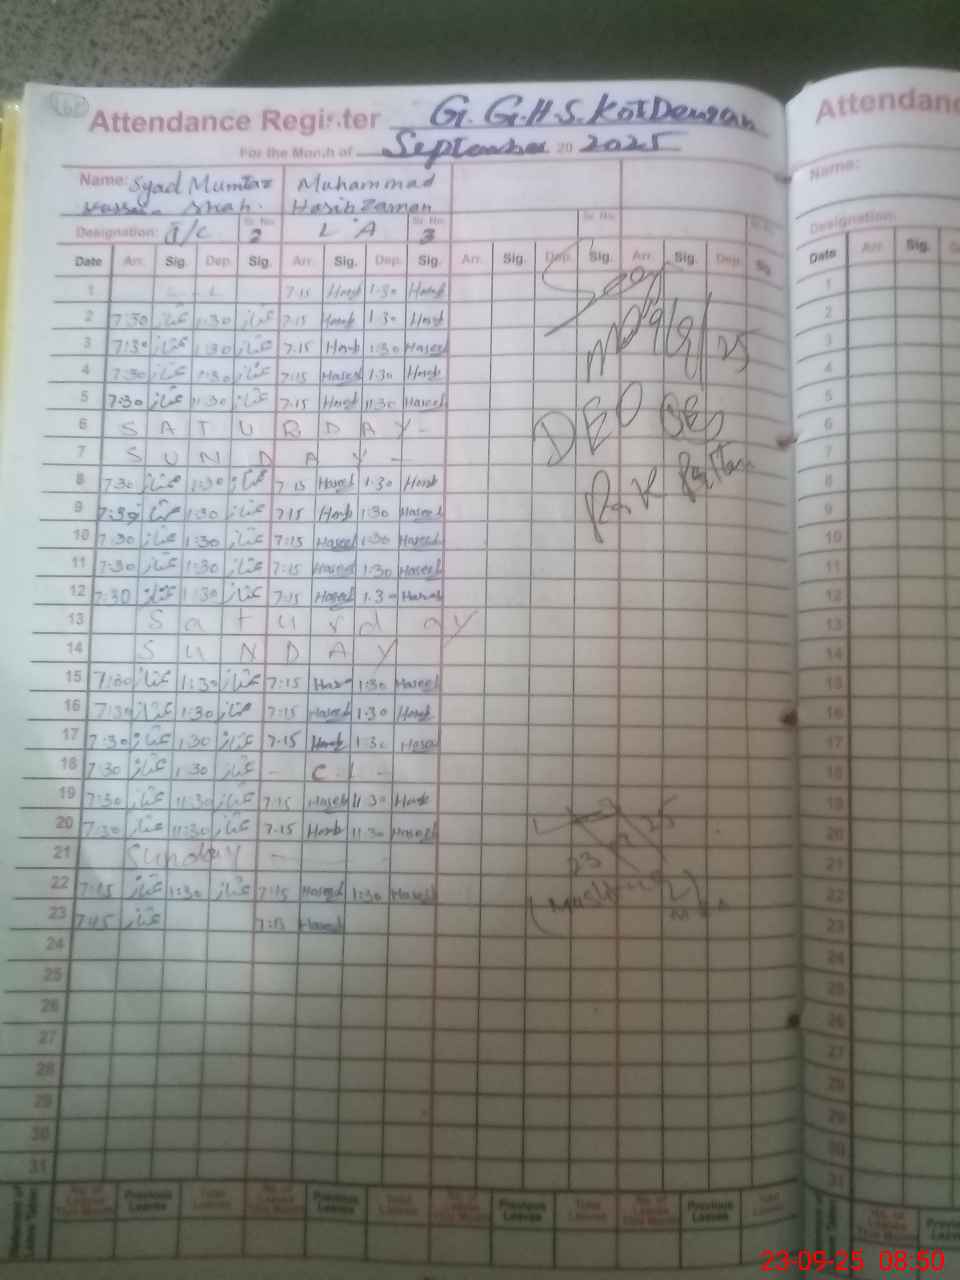 Attendance Register G.G.H.S. Kot Dewan
For the Month of September 20 2025
Name: Syad Mumtaz Shah. Muhammad Hasib Zaman
Sr. No. Sr. No. Sr. No.
Designation: 2 L A 3
Date Arr. Sig. Dep. Sig. Arr. Sig. Dep. Sig. Arr. Sig. Dep. Sig. Arr. Sig. Dep. Sig.
1 7:15 Haseeb 1:30 Haseeb
2 7:30 ممتاز 1:30 ممتاز 7:15 Haseeb 1:30 Haseeb
3 7:30 ممتاز 1:30 ممتاز 7:15 Haseeb 1:30 Haseeb
4 7:30 ممتاز 1:30 ممتاز 7:15 Haseeb 1:30 Haseeb
5 7:30 ممتاز 11:30 ممتاز 7:15 Haseeb 11:30 Haseeb
6 SATURDAY
7 SUNDAY
8 7:30 ممتاز 1:30 ممتاز 7:15 Haseeb 1:30 Haseeb
9 7:30 ممتاز 1:30 ممتاز 7:15 Haseeb 1:30 Haseeb
10 7:30 ممتاز 1:30 ممتاز 7:15 Haseeb 1:30 Haseeb
11 7:30 ممتاز 1:30 ممتاز 7:15 Haseeb 1:30 Haseeb
12 7:30 ممتاز 1:30 ممتاز 7:15 Haseeb 1:30 Haseeb
13 Saturday
14 SUNDAY
15 7:30 ممتاز 1:30 ممتاز 7:15 Haseeb 1:30 Haseeb
16 7:30 ممتاز 1:30 ممتاز 7:15 Haseeb 1:30 Haseeb
17 7:30 ممتاز 1:30 ممتاز 7:15 Haseeb 1:30 Haseeb
18 7:30 ممتاز 1:30 ممتاز - C L -
19 7:30 ممتاز 11:30 ممتاز 7:15 Haseeb 11:30 Haseeb
20 7:30 ممتاز 11:30 ممتاز 7:15 Haseeb 11:30 Haseeb
21 Sunday
22 7:15 ممتاز 1:30 ممتاز 7:15 Haseeb 1:30 Haseeb
23 7:45 ممتاز 7:15 Haseeb
24
25
26
27
28
29
30
31
No. of Leaves This Month Previous Leaves Total Leaves No. of Leaves This Month Previous Leaves Total Leaves No. of Leaves This Month Previous Leaves Total Leaves No. of Leaves This Month Previous Leaves Total Leaves
Seen
DEO
23 9 25
Attendance
Name:
Designation:
Date Arr. Sig.
1
2
3
4
5
6
7
8
9
10
11
12
13
14
15
16
17
18
19
20
21
22
23
24
25
26
27
28
29
30
31
No. of Leaves This Month
23-09-25 08:50